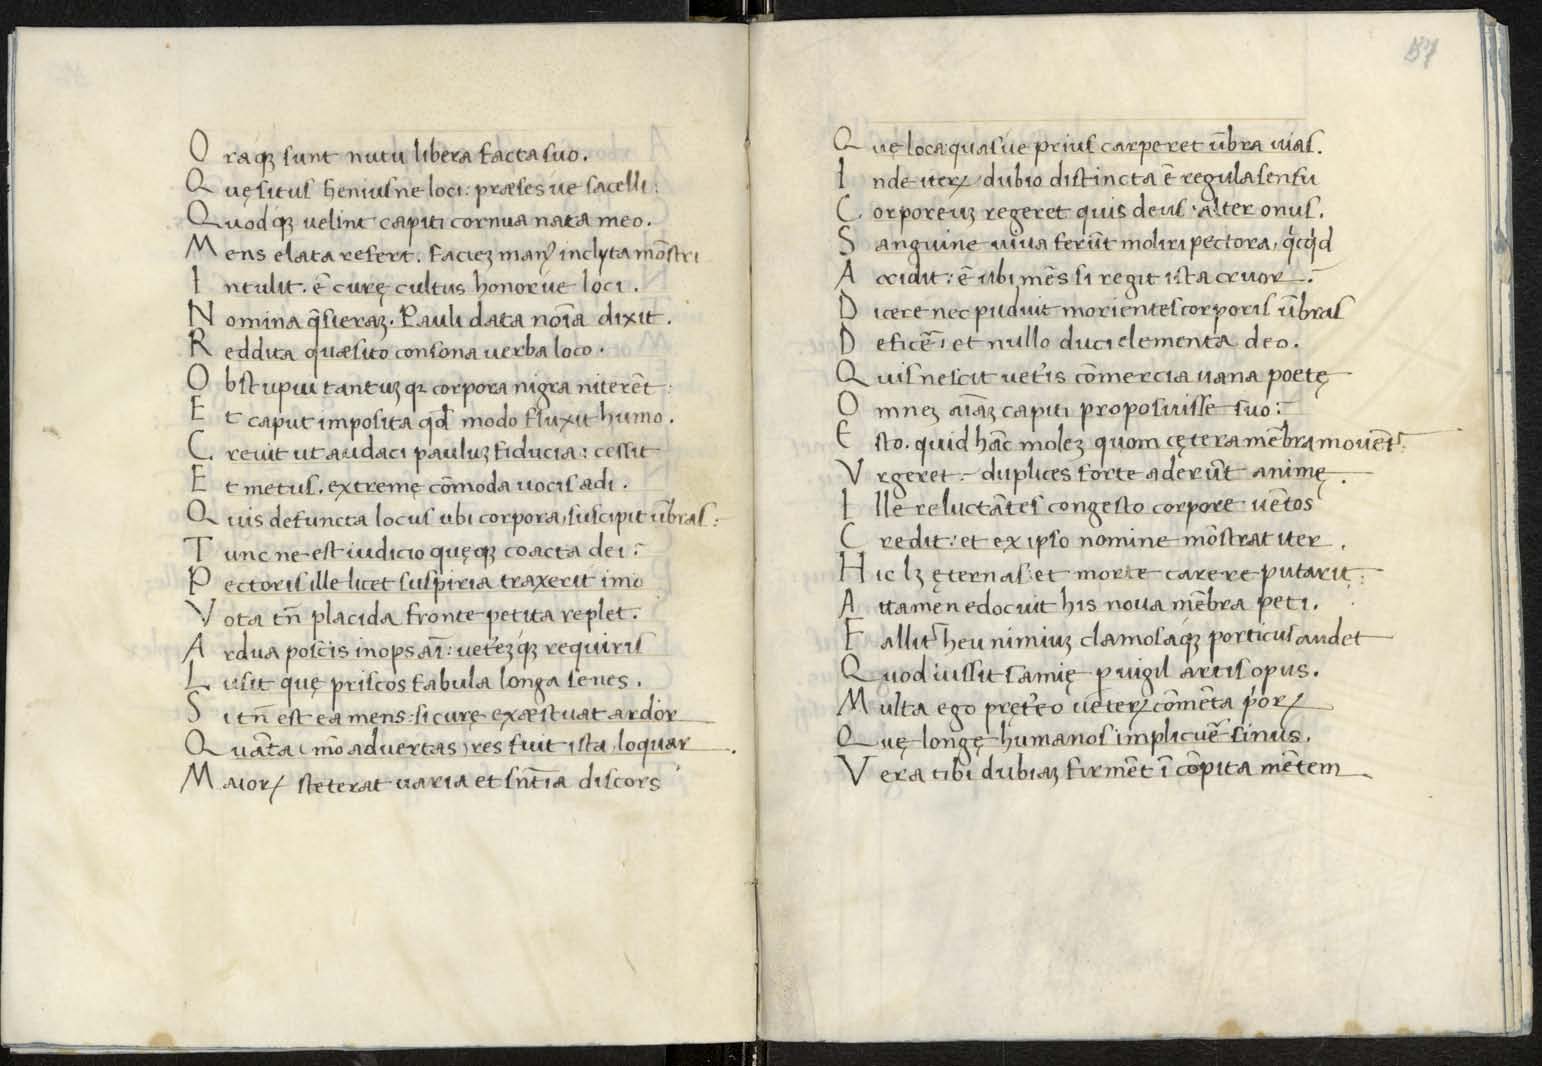 Oraqꝫ sunt nutu libera facta suo.
Quęsitus heniusne loci: præses ue sacelli:
Quodqꝫ uelint capiti cornua nata meo.
Mens elata refert. facieꝫ man⁹ inclyta mōstri
Intulit. ē curę cultus honor ue loci.
Nomina q̄sieraꝫ. Pauli data nōīa dixit.
Reddita quæsito consona uerba loco.
Obstupui tantuꝫ qꝫ corpora nigra niterēt:
Et caput imposita qđ modo fluxit humo.
Creuit ut audaci pauluꝫ fiducia: cessit
Et metus. extremę cōmoda uocis adi.
Quis defuncta locus ubi corpora, suscipit ūbras:
Tunc ne est iudicio quęqꝫ coacta dei:
Pectoris ille licet suspiria traxerit imo
Vota tn̄ placida fronte petita replet.
Ardua poscis inops aī: uet'eꝫqꝫ requiris
Lusit quę priscos fabula longa senes.
Si tn̄ est ea mens: si curę exæstuat ardor
Quāta (īmo aduertas) res fuit ista, loquar.
Maioꝝ steterat uaria et sn̄tīa discors
57
Quę loca: quas ue prius carperet ūbra uias.
Inde iteꝝ dubio distincta ē regula sensu
Corporeuꝫ regeret quis deus alter onus.
Sanguine uiua ferūt moliri pectora, qͥcqͥd
Accidit: ē ubi mēs si regit ista cruor.
Dicere nec puduit morientes corporis ūbras
Deficēr: et nullo duci elementa deo.
Quis nescit uet'is cōmercia uana poetę
Omneꝫ aīaꝫ capiti proposuisse suo:
Esto. quid hāc moleꝫ quom cętera mēbra mouēt
Vrgeret: duplices forte aderūt animę.
Ille reluctātes congesto corpore uētos
Credit: et ex ipso nomine mōstrat iter.
Hic lꝫ ęternas: et morte carere putarit:
Attamen edocuit his noua mēbra peti.
Fallit' heu nimiuꝫ clamosaqꝫ porticus audet
Quod iussit samię ꝑuigil artis opus.
Multa ego pręt'eo ueteꝝ cōmēta pioꝝ
Quę longę humanos implicuēr sinus.
Vera tibi dubiaꝫ firmēt ī cōpita mētem